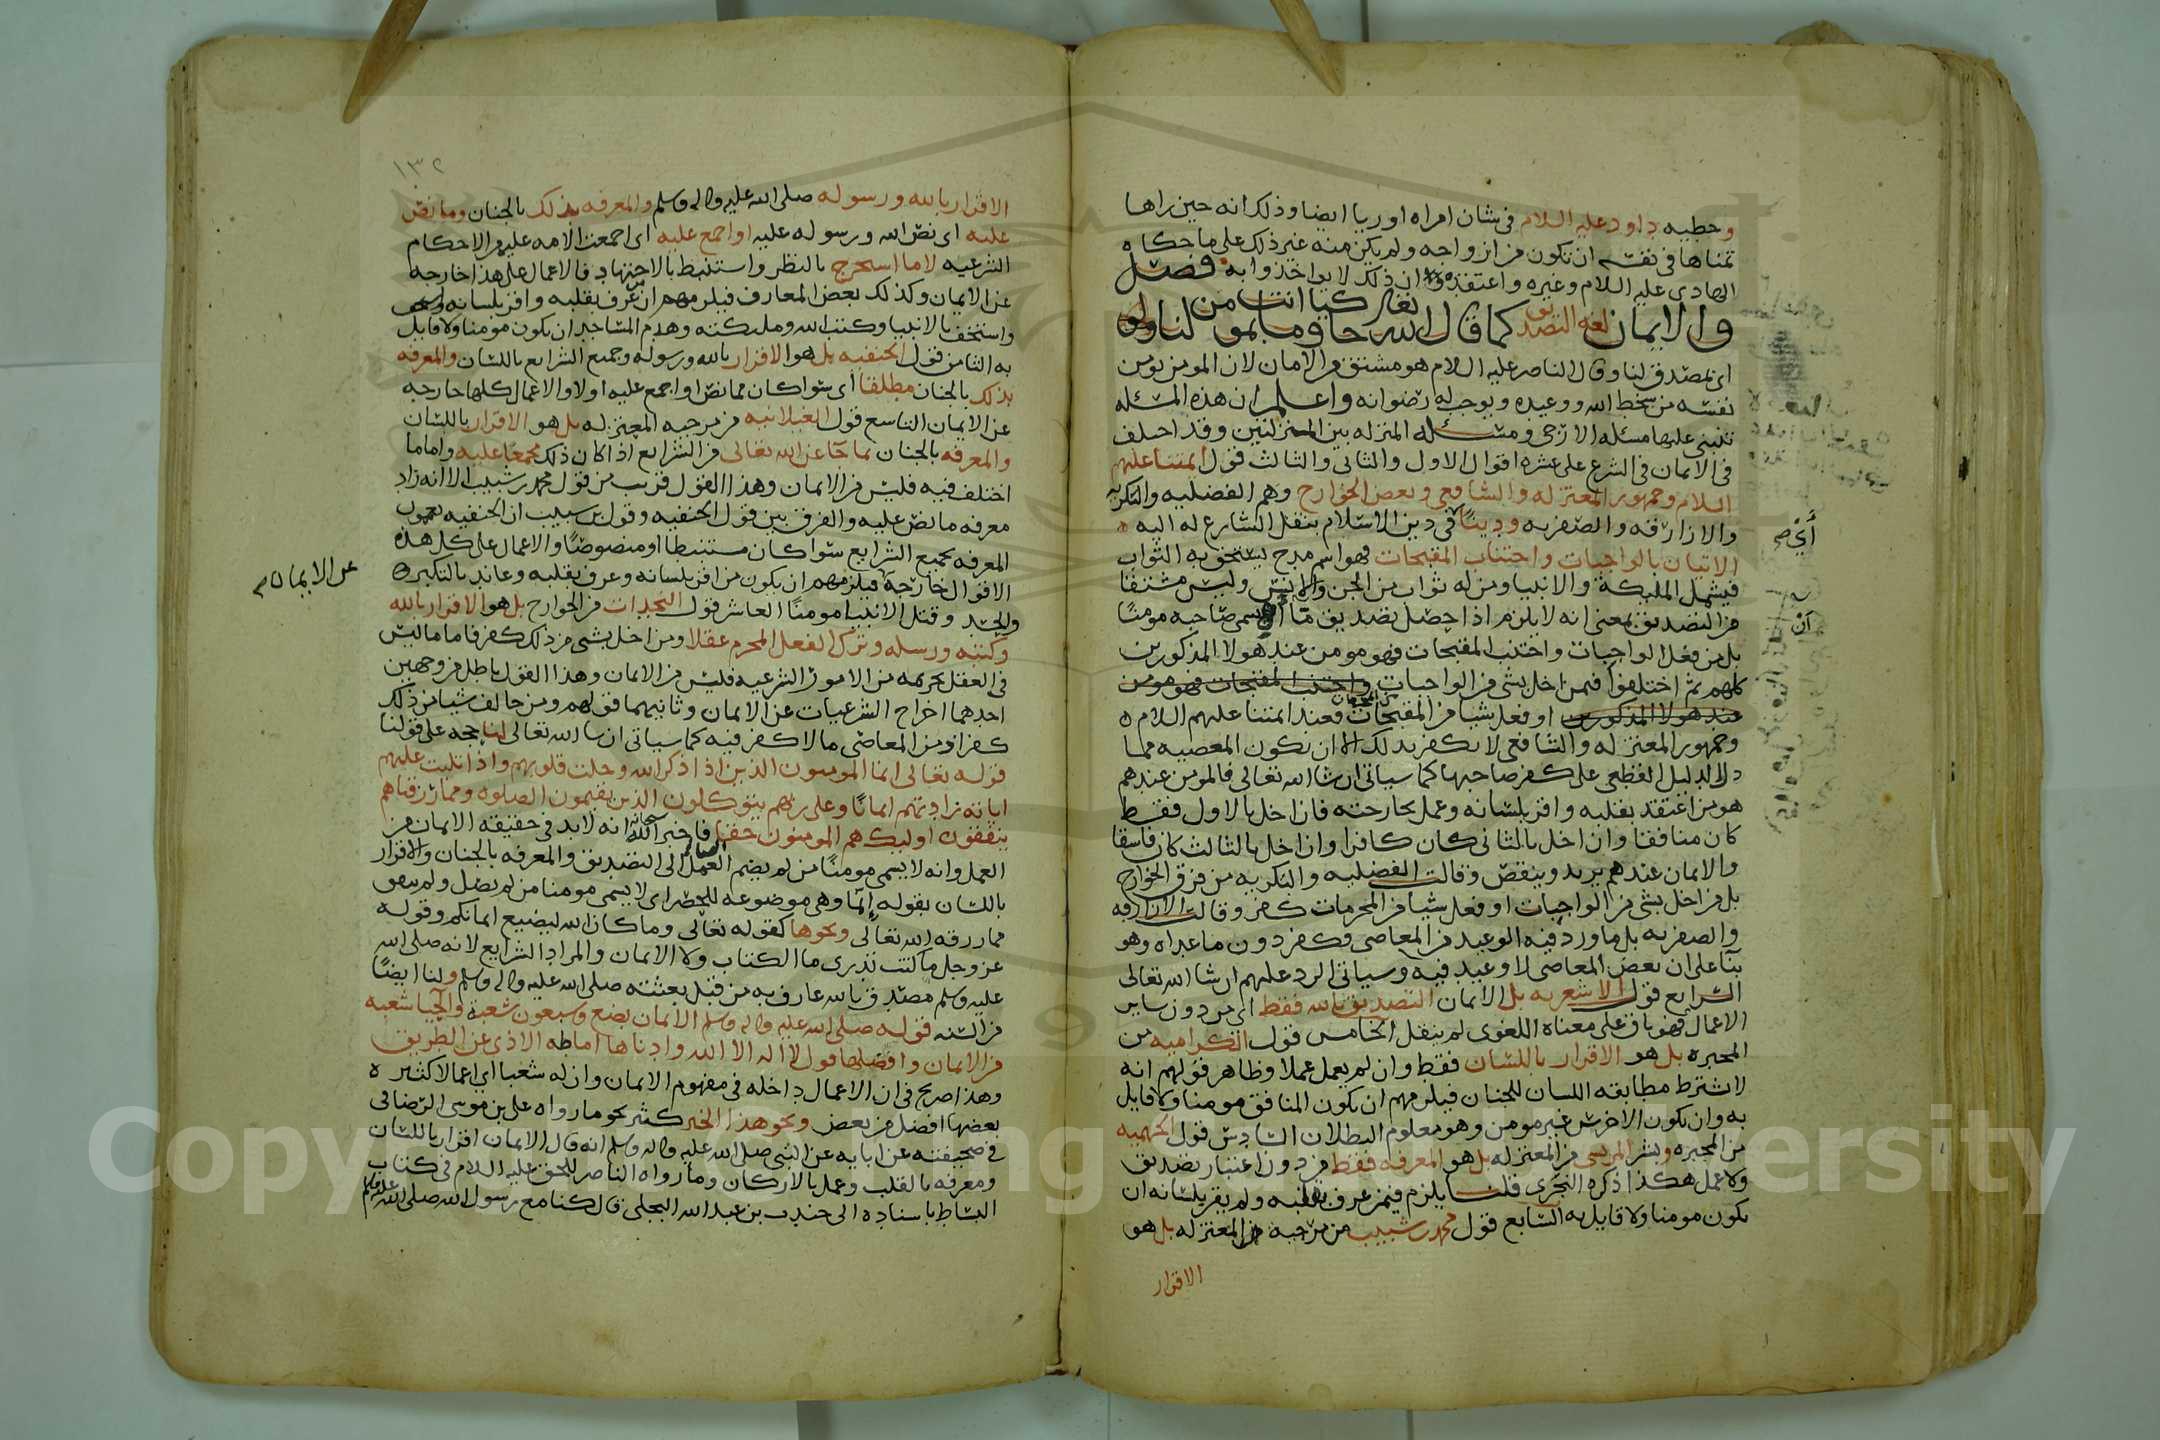 وخطيه داود عليه السلام في شان امراه اوريا ايضا وذلك انه حين راها
تمناها في نفسه ان تكون من ازواجه ولم يكن منه غير ذلك على ما حكاه
الهادي عليه السلام وغيره واعتقد ان ذلك لا يواخذ وا به فصل
والايمان لغه التصديق كما قال الله تعالى حاكيا وما انت بمومن لنا ولو
اي بمصدق لنا وقال الناصر عليه السلام هو مشتق من الامان لان المومن يومن
نفسه من سخط الله ووعيده ويوجب له رضوانه واعلم ان هذه المسئله
تنبني عليها مسئله الارجى ومسئله المنزله بين المنزلتين وقد اختلف
في الايمان في الشرع على عشره اقوال الاول والثاني والثالث قول ايمتنا عليهم
السلام وجمهور المعتزله والشافعي وبعض الخوارج وهم الفضليه والبكريه
والازارقه والصفريه ودينا في دين الاسلام بنقل الشارع له اليه
الاتيان بالواجبات واجتناب المقبحات فهو اسم مدح يستحق به الثواب
فيشمل الملئكة والانبيا ومن له ثواب من الجن والانس وليس مشتقا
من التصديق بمعنى انه لا يلزم اذا حصل تصديق ما ان يسمى صاحبه مومنا
بل من فعل الواجبات واجتنب المقبحات فهو مومن عند هولا المذكورين
كلهم ثم اختلفوا فيمن اخل بشي من الواجبات واجتنب المقبحات فهو مومن
عند هولا المذكورين او فعل شيا من المقبحات فعند ايمتنا عليهم السلام
وجمهور المعتزله والشافعي لا يكفر بذلك الا ان تكون المعصيه مما
دل الدليل القطعي على كفر صاحبها كما سياتي ان شا الله تعالى فالمومن عندهم
هو من اعتقد بقلبه واقر بلسانه وعمل بجارحته فان اخل بالاول فقط
كان منافقا وان اخل بالثاني كان كافرا وان اخل بالثالث كان فاسقا
والايمان عندهم يزيد وينقص وقالت الفضليه والبكريه من فرق الخوارج
بل من اخل بشي من الواجبات او فعل شيا من المحرمات كفر وقالت الازارقه
والصفريه بل ما ورد فيه الوعيد من المعاصي فكفر دون ما عداه وهو
بنا على ان بعض المعاصي لا وعيد فيه وسياتي الرد عليهم ان شا الله تعالى
الرابع قول الاشعريه بل الايمان التصديق بالله فقط اي من دون ساير
الاعمال فهو باق على معناه اللغوي لم ينقل الخامس قول الكراميه من
المجبره بل هو الاقرار باللسان فقط وان لم يعمل عملا وظاهر قولهم انه
لا يشترط مطابقه اللسان للجنان فيلزمهم ان يكون المنافق مومنا ولا قايل
به وان يكون الاخرس غير مومن وهو معلوم البطلان السادس قول الجهميه
من المجبره وبشر المريسي من المعتزله بل هو المعرفه فقط من دون اعتبار تصديق
ولا عمل هكذا ذكره النجري قلت يلزم فيمن عرف بقلبه ولم يقر بلسانه ان
يكون مومنا ولا قايل به السابع قول محمد بن شبيب من مرجيه المعتزله بل هو
الاقرار
أي
أن
١٣٢
الاقرار بالله ورسوله صلى الله عليه واله وسلم والمعرفه بذلك بالجنان وما نص
عليه اي نص الله ورسوله عليه او اجمع عليه اي اجمعت الامه عليه من الاحكام
الشرعيه لا ما استخرج بالنظر واستنبط بالاجتهاد فالاعمال على هذا خارجه
عن الايمان وكذلك بعض المعارف فيلزمهم ان من عرف بقلبه واقر بلسانه
واستخف بالانبيا وكتب الله وملئكته وهدم المساجد ان يكون مومنا ولا قايل
به الثامن قول الحنفيه بل هو الاقرار بالله ورسوله وجميع الشرايع باللسان والمعرفه
بذلك بالجنان مطلقا اي سوا كان مما نص او اجمع عليه او لا والاعمال كلها خارجه
عن الايمان التاسع قول الغيلانيه من مرجيه المعتزله بل هو الاقرار باللسان
والمعرفه بالجنان بما جا عن الله تعالى من الشرايع اذا كان ذلك مجمعا عليه واما ما
اختلف فيه فليس من الايمان وهذا القول قريب من قول محمد بن شبيب الا انه زاد
معرفه ما نص عليه والفرق بين قول الحنفيه وقول بن شبيب ان الحنفيه يعمون
المعرفه بجميع الشرايع سوا كان مستنبطا او منصوصا والاعمال على كل هذه
الاقوال خارجة فيلزمهم ان يكون من اقر بلسانه وعرف بقلبه وعاند بالتكبر
والجحد وقتل الانبيا مومنا العاشر قول النجدات من الخوارج بل هو الاقرار بالله
وكتبه ورسله وترك الفعل المحرم عقلا ومن اخل بشي من ذلك كفر فاما ما ليس
في العقل تحريمه من الامور الشرعيه فليس من الايمان وهذا القول باطل من وجهين
احدهما اخراج الشرعيات عن الايمان وثانيهما قولهم ومن خالف شيا من ذلك
كفر اذ من المعاصي ما لا كفر فيه كما سياتي ان شا الله تعالى لنا حجه على قولنا
قوله تعالى انما المومنون الذين اذا ذكر الله وجلت قلوبهم واذا تليت عليهم
اياته زادتهم ايمانا وعلى ربهم يتوكلون الذين يقيمون الصلوه ومما رزقناهم
ينفقون اوليك هم المومنون حقا فاخبر الله انه لا بد في حقيقه الايمان من
العمل وانه لا يسمى مومنا من لم يضم العمل الصالح الى التصديق والمعرفه بالجنان والاقرار
باللسان بقوله انما وهي موضوعه للحصر اي لا يسمى مومنا من لم يصل ولم ينفق
مما رزقه الله تعالى ونحوها كقوله تعالى وما كان الله ليضيع ايمانكم وقوله
عز وجل ما كنت تدري ما الكتاب ولا الايمان والمراد الشرايع لانه صلى الله
عليه وسلم مصدق بالله عارف به من قبل بعثته صلى الله عليه واله وسلم ولنا ايضا
من السنه قوله صلى الله عليه واله وسلم الايمان بضع وسبعون شعبة والحيا شعبه
من الايمان وافضلها قول لا اله الا الله وادناها اماطه الاذى عن الطريق
وهذا صريح في ان الاعمال داخله في مفهوم الايمان وان له شعبا اي اعمالا كثيره
بعضها افضل من بعض ونحو هذا الخبر كثير نحو ما رواه علي بن موسى الرضا في
في صحيفته عن ابايه عن النبي صلى الله عليه واله وسلم انه قال الايمان اقرار باللسان
ومعرفه بالقلب وعمل بالاركان وما رواه الناصر للحق عليه السلام في كتاب
البساط باسناده الى جندب بن عبد الله البجلي قال كنا مع رسول الله صلى الله عليه واله وسلم
عن الايمان
Copyright © King Saud University